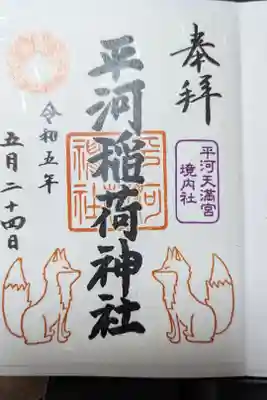 奉拝
平河天満宮
境内社
平河稲荷神社
令和五年
五月二十四日